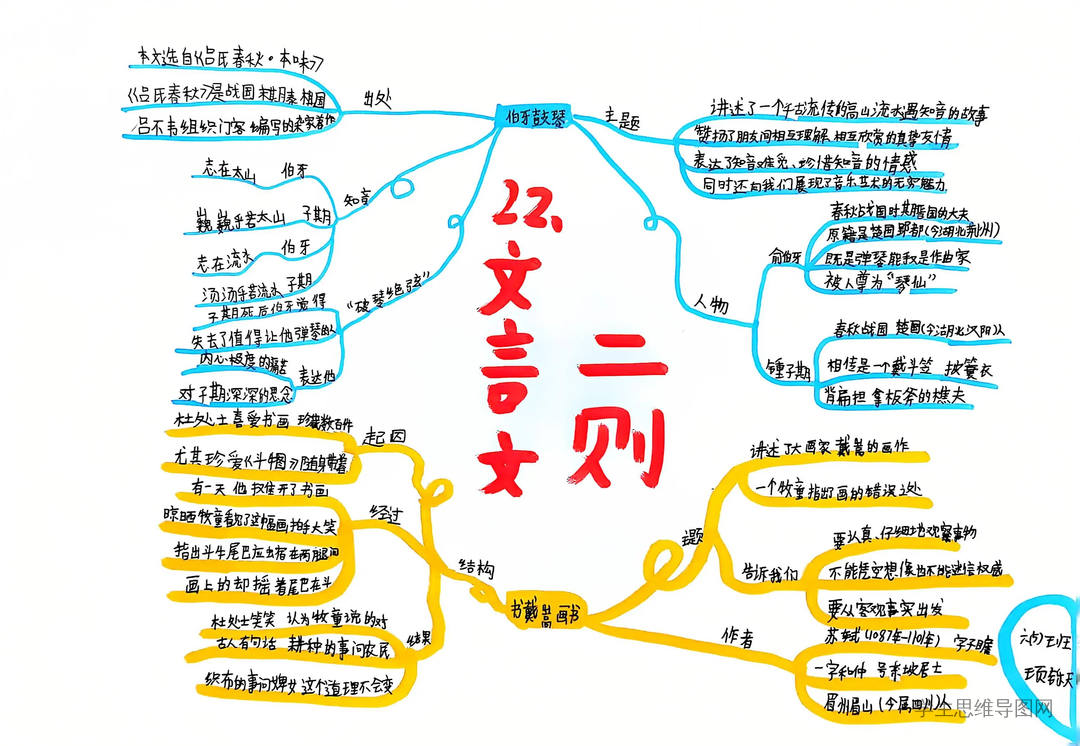 22、文言文
二则
伯牙鼓琴
出处
本文选自《吕氏春秋·本味》
《吕氏春秋》是战国末期秦相国
吕不韦组织门客编写的杂家著作
知音
伯牙
志在太山
子期
巍巍乎若太山
伯牙
志在流水
子期
汤汤乎若流水
“破琴绝弦”
子期死后伯牙觉得
失去了值得让他弹琴的人
表达他
内心极度的痛苦
对子期深深的思念
主题
讲述了一个千古流传的高山流水遇知音的故事
赞扬了朋友间相互理解、相互欣赏的真挚友情
表达了知音难觅、珍惜知音的情感
同时还向我们展现了音乐艺术的无穷魅力
人物
俞伯牙
春秋战国时期晋国的大夫
原籍是楚国郢都(今湖北荆州)
既是弹琴能手又是作曲家
被人尊为“琴仙”
锺子期
春秋战国 楚国(今湖北汉阳)人
相传是一个戴斗笠 披蓑衣
背扁担 拿板斧的樵夫
书戴嵩画书
结构
起因
杜处士喜爱书画 珍藏数百件
尤其珍爱《斗牛图》随身带着
经过
有一天 他摊开了书画
晾晒牧童看了这幅画拍手大笑
指出斗牛尾巴应当夹在两腿间
画上的却摇着尾巴在斗
结果
杜处士笑笑 认为牧童说的对
古人有句话 耕种的事问农民
织布的事问婢女 这个道理不会变
主题
讲述了大画家戴嵩的画作
一个牧童指出了画的错误之处
告诉我们
要认真、仔细地观察事物
不能凭空想像也不能迷信权威
要从客观事实出发
作者
苏轼(1037年-1101年) 字子瞻
一字和仲 号东坡居士
眉州眉山(今属四川)人
六(2)班
学生思维导图网